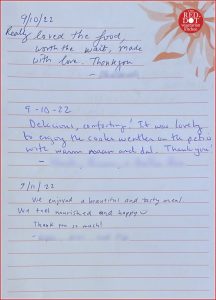 RED DOT
9/10/22
Really loved the food,
worth the wait, made
with love. Thankyou
9-10-22
Delicious, comforting! It was lovely
to enjoy the cooler weather on the patio
with warm naan and dal. Thank you.
9/11/22
We enjoyed a beautiful and tasty meal.
We feel nourished and happy
Thank you so much!